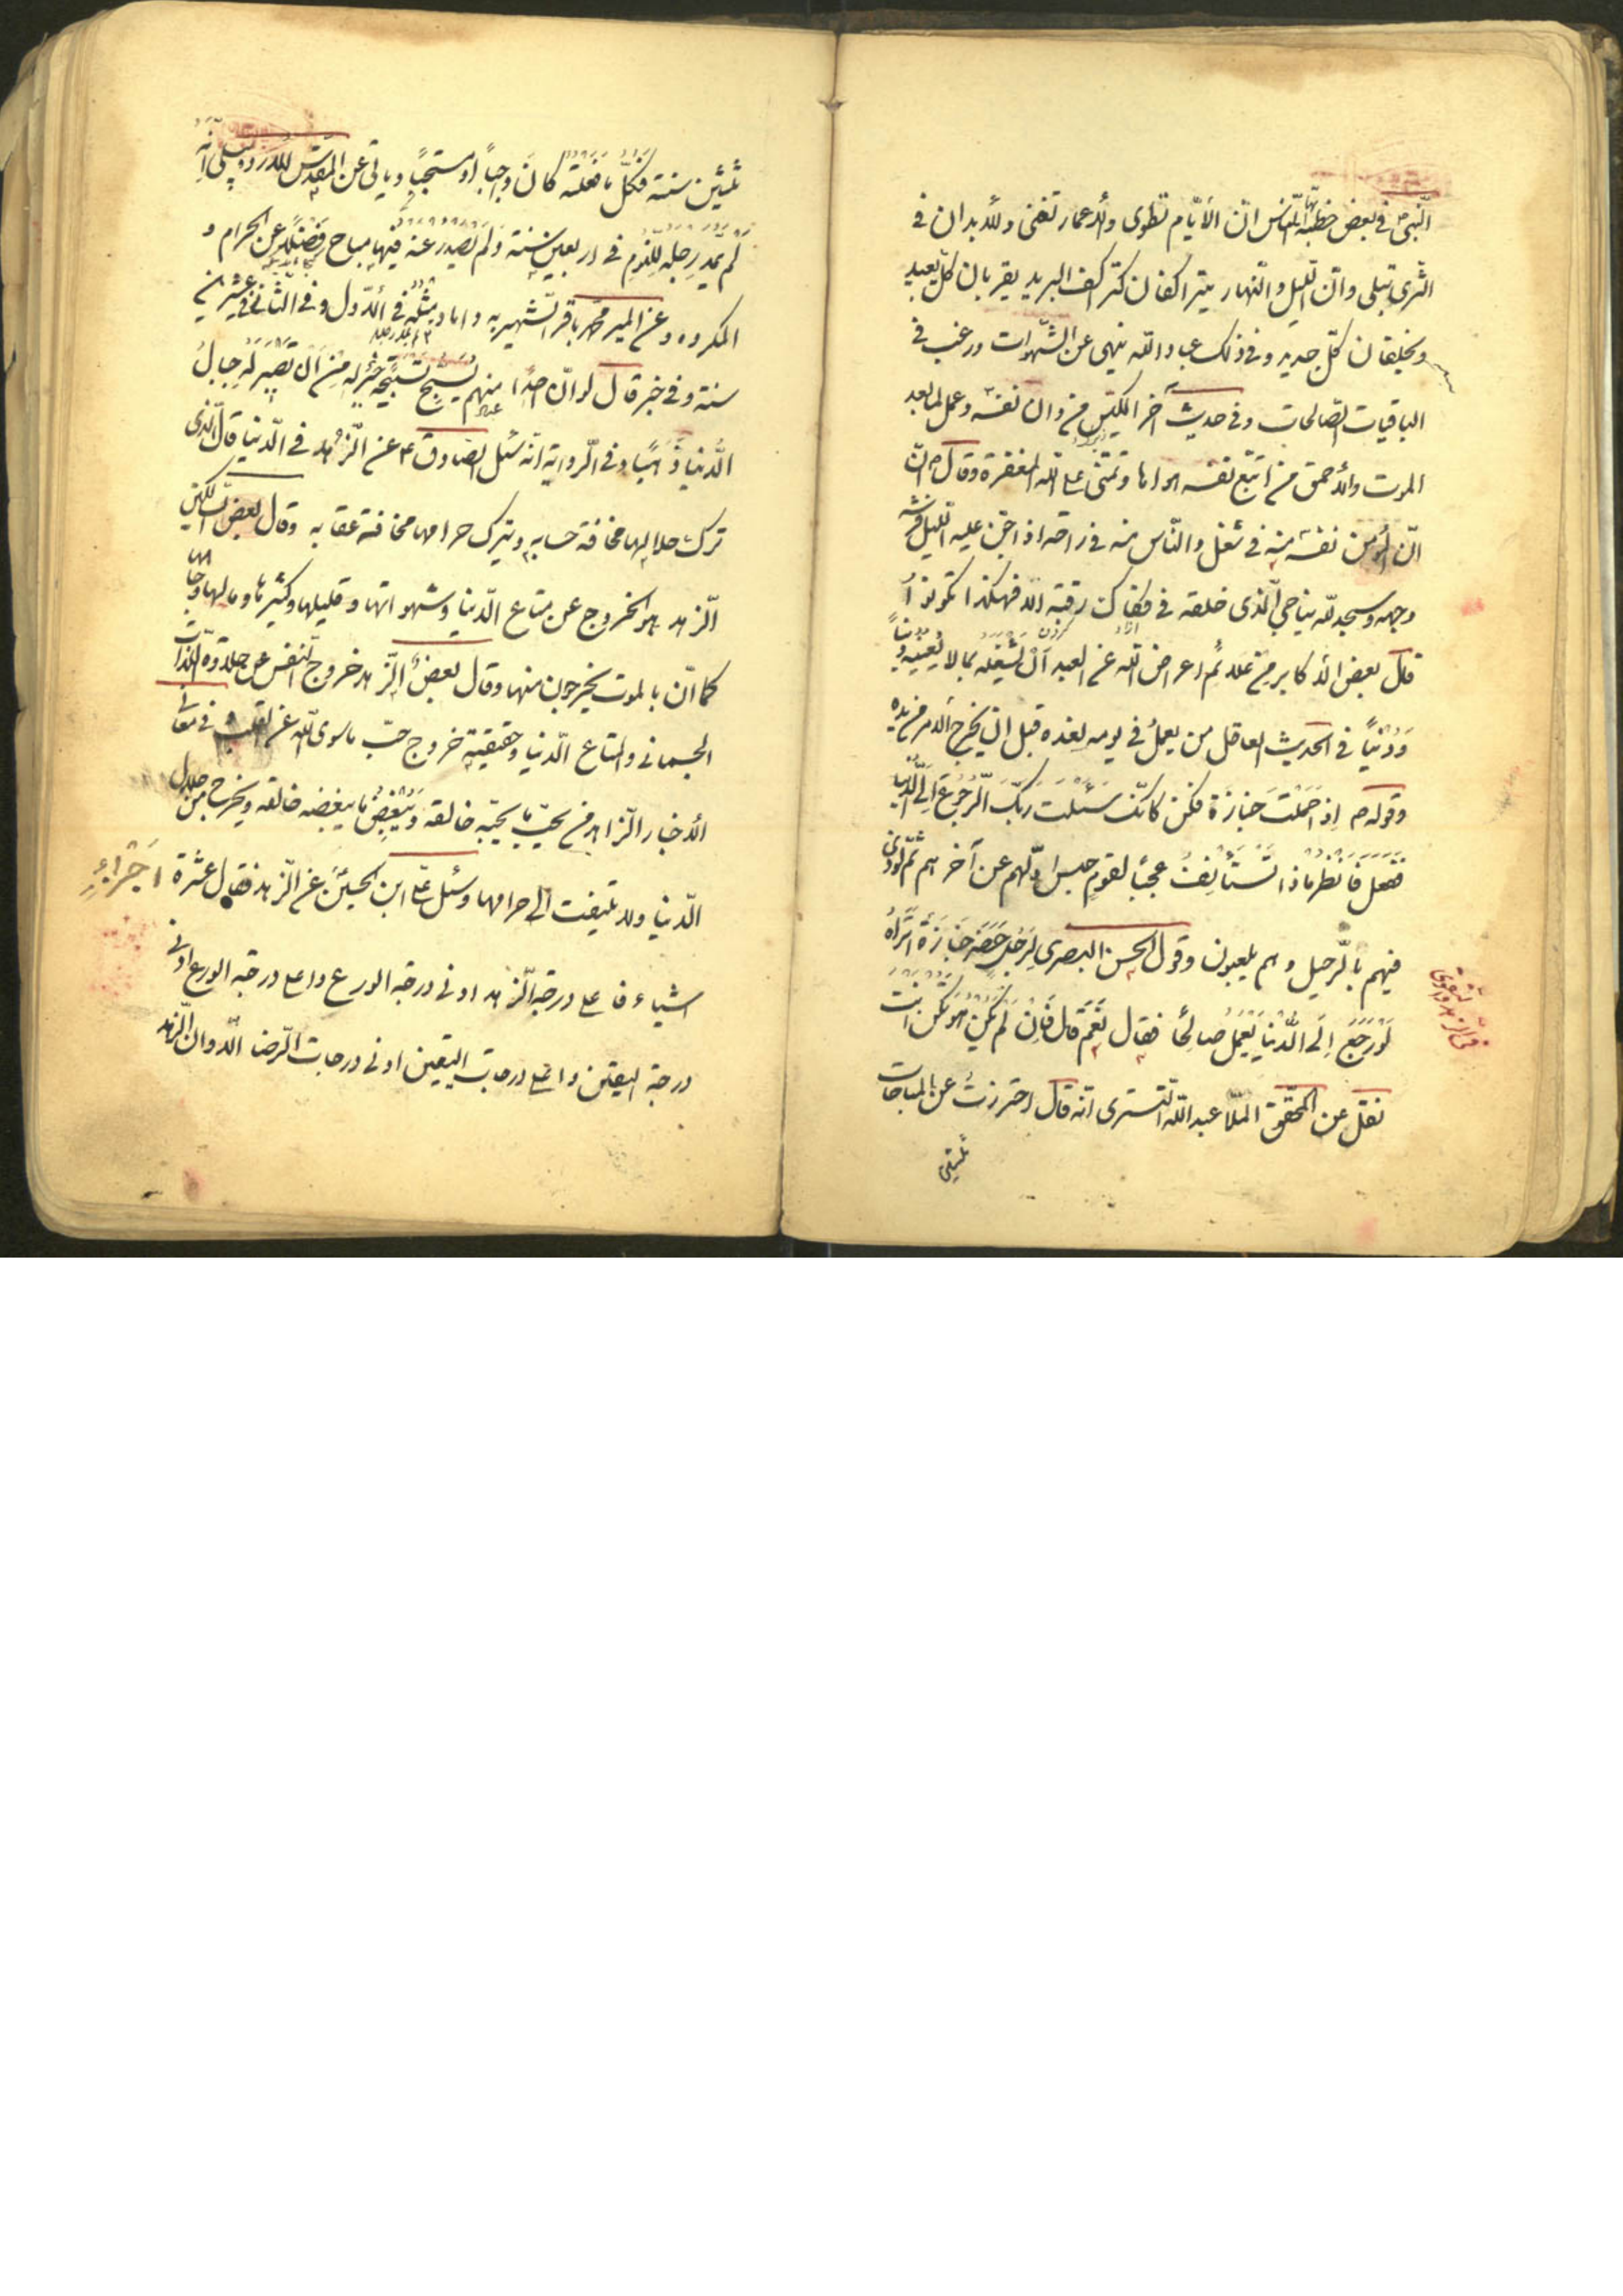 النّبیّ فی بعض خطبه ایّها النّاس انّ الایّام تطوی والاعمار تفنی والابدان فی
الثّری تبلی وانّ اللّیل والنّهار یتراکضان کتراکض البرید یقربان کلّ بعید
ویخلقان کلّ جدید وفی ذلک عباد الله ینهی عن الشّهوات ورغب فی
الباقیات الصّالحات وفی حدیث آخر الکیّس من دان نفسه وعمل لما بعد
الموت والاحمق من اتبع نفسه هواها وتمنّی علی الله المغفرة وقال
انّ المؤمن نفسه منه فی شغل والنّاس منه فی راحة اذا جنّ علیه اللّیل فرش
وجهه وسجد لله یناجی الّذی خلقه فی فکاک رقبته الا فهکذا کونوا
قال بعض الاکابر من علائم اعراض الله عن العبد ان یشغله بما لا یعنیه دیناً
ودنیاً فی الحدیث العاقل من یعمل فی یومه لغده قبل ان یخرج الامر من یده
وقوله اذا حملت جنازة فکن کانّک سئلت ربّک الرّجوع الی الدّنیا
ففعل فانظر ماذا تستأنف عجباً لقوم حبس اوّلهم عن آخرهم ثمّ نودی
فیهم بالرّحیل وهم یلعبون وقول الحسن البصری لرجل حضر جنازة اتراه
لو رجع الی الدّنیا یعمل صالحاً فقال نعم قال فان لم یکن هو فکن انت
نقل عن المحقّق الملّا عبدالله التستری انّه قال احترزت عن المباحات
ثلثین
فی الزهد والتقوی
ثلثین سنة فکلّ ما فعلته کان واجباً او مستحبّاً ویاتی عن المقدّس الاردبیلی انّه
لم یمد رجله للنّوم فی اربعین سنة ولم یصدر عنه فیها مباح فضلا عن الحرام و
المکروه وعن المیر محمّد باقر الشّهیر به داماد مثله فی الاوّل وفی الثانی فی عشرین
سنة وفی خبر قال لو انّ احداً منهم یسبّح تسبیحة خیر له من ان تصیر له جبال
الدّنیا ذهباً وفی الرّوایة انّه سئل الصّادق ع عن الزّهد فی الدّنیا قال الّذی
ترک حلالها مخافة حسابه ویترک حرامها مخافة عقابه وقال بعض السّالکین
الزّهد هو الخروج عن متاع الدّنیا وشهواتها وقلیلها وکثیرها ومالها وجاهها
کما انّ بالموت یخرجون منها وقال بعض الزّهد خروج النّفس عن حلاوة اللّذات
الجسمانی والمتاع الدّنیا وحقیقته خروج حبّ ما سوی الله عن القلب فی معانی
الاخبار الزّاهد من یحبّ ما یحبّه خالقه ویبغض ما یبغضه خالقه ویخرج من حلال
الدّنیا ولا یلتفت الی حرامها وسئل علی ابن الحسین عن الزّهد فقال عشرة اجزاء
اشیاء فاعلی درجة الزّهد ادنی درجة الورع واعلی درجة الورع ادنی
درجة الیقین واعلی درجات الیقین ادنی درجات الرّضا الا وان الزّهد